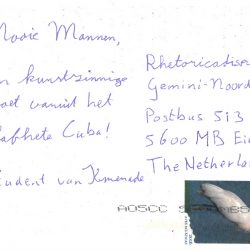 Mooie Mannen,
n kunstzinnige
oet vanuit het
afhete Cuba!
udent van Kemenade
Rhetoricadisp
Gemini-Noord
Postbus 513
5600 MB Ein
The Netherlan